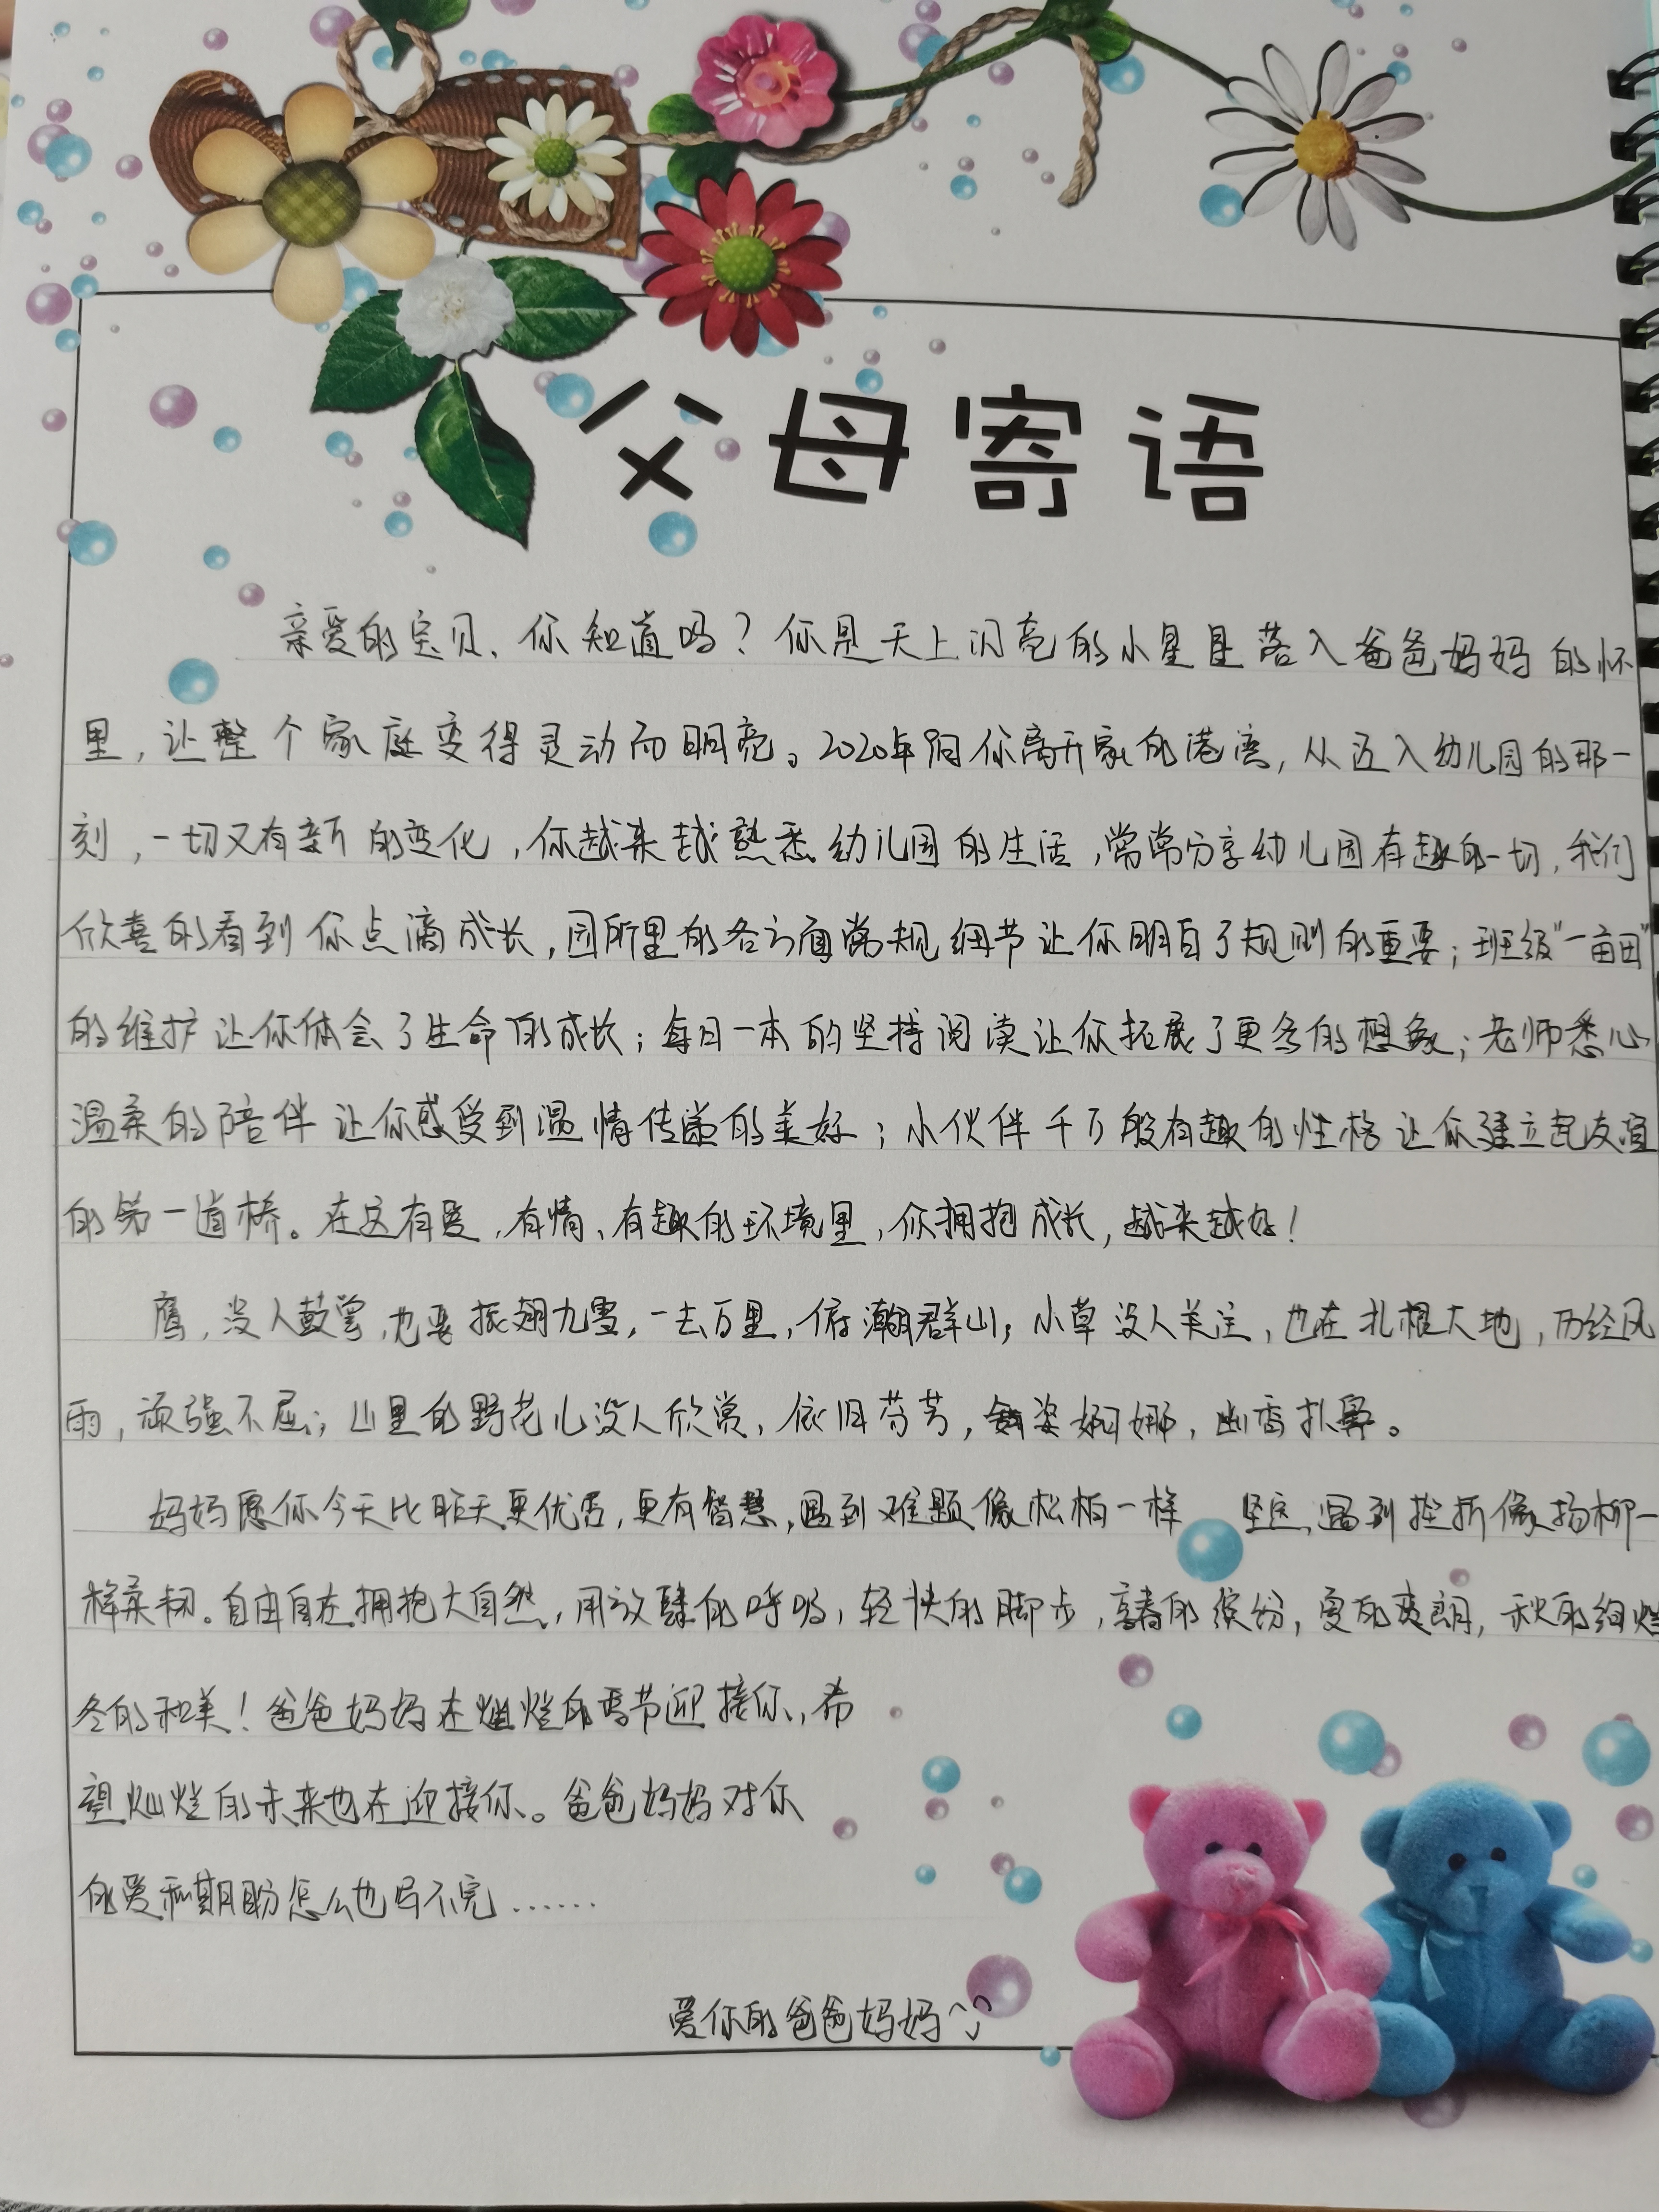 父母寄语
亲爱的宝贝、你知道吗？你是天上闪亮的小星星落入爸爸妈妈的怀
里，让整个家庭变得灵动而明亮。2020年9月你离开家的港湾，从迈入幼儿园的那一
刻，一切又有新的变化，你越来越熟悉幼儿园的生活，常常分享幼儿园有趣的一切，我们
欣喜的看到你点滴成长，园所里的各方面常规细节让你明白了规则的重要；班级“一亩田”
的维护让你体会了生命的成长；每日一本的坚持阅读让你拓展了更多的想象；老师悉心
温柔的陪伴让你感受到温情传递的美好；小伙伴千万般有趣的性格让你建立起友谊
的第一道桥。在这有爱、有情、有趣的环境里，你拥抱成长，越来越好！
鹰，没人鼓掌，也要振翅九霄，一去万里，俯瞰群山；小草没人关注，也在扎根大地，历经风
雨，顽强不屈；山里的野花儿没人欣赏，依旧芬芳，舞姿婀娜，幽香扑鼻。
妈妈愿你今天比昨天更优秀，更有智慧，遇到难题像松柏一样 坚定，遇到挫折像杨柳一
样柔韧。自由自在拥抱大自然，用放肆的呼吸，轻快的脚步，享春的缤纷，夏的爽朗，秋的绚烂
冬的和美！爸爸妈妈在灿烂的季节迎接你，希
望灿烂的未来也在迎接你。爸爸妈妈对你
的爱和期盼怎么也写不完……
爱你的爸爸妈妈